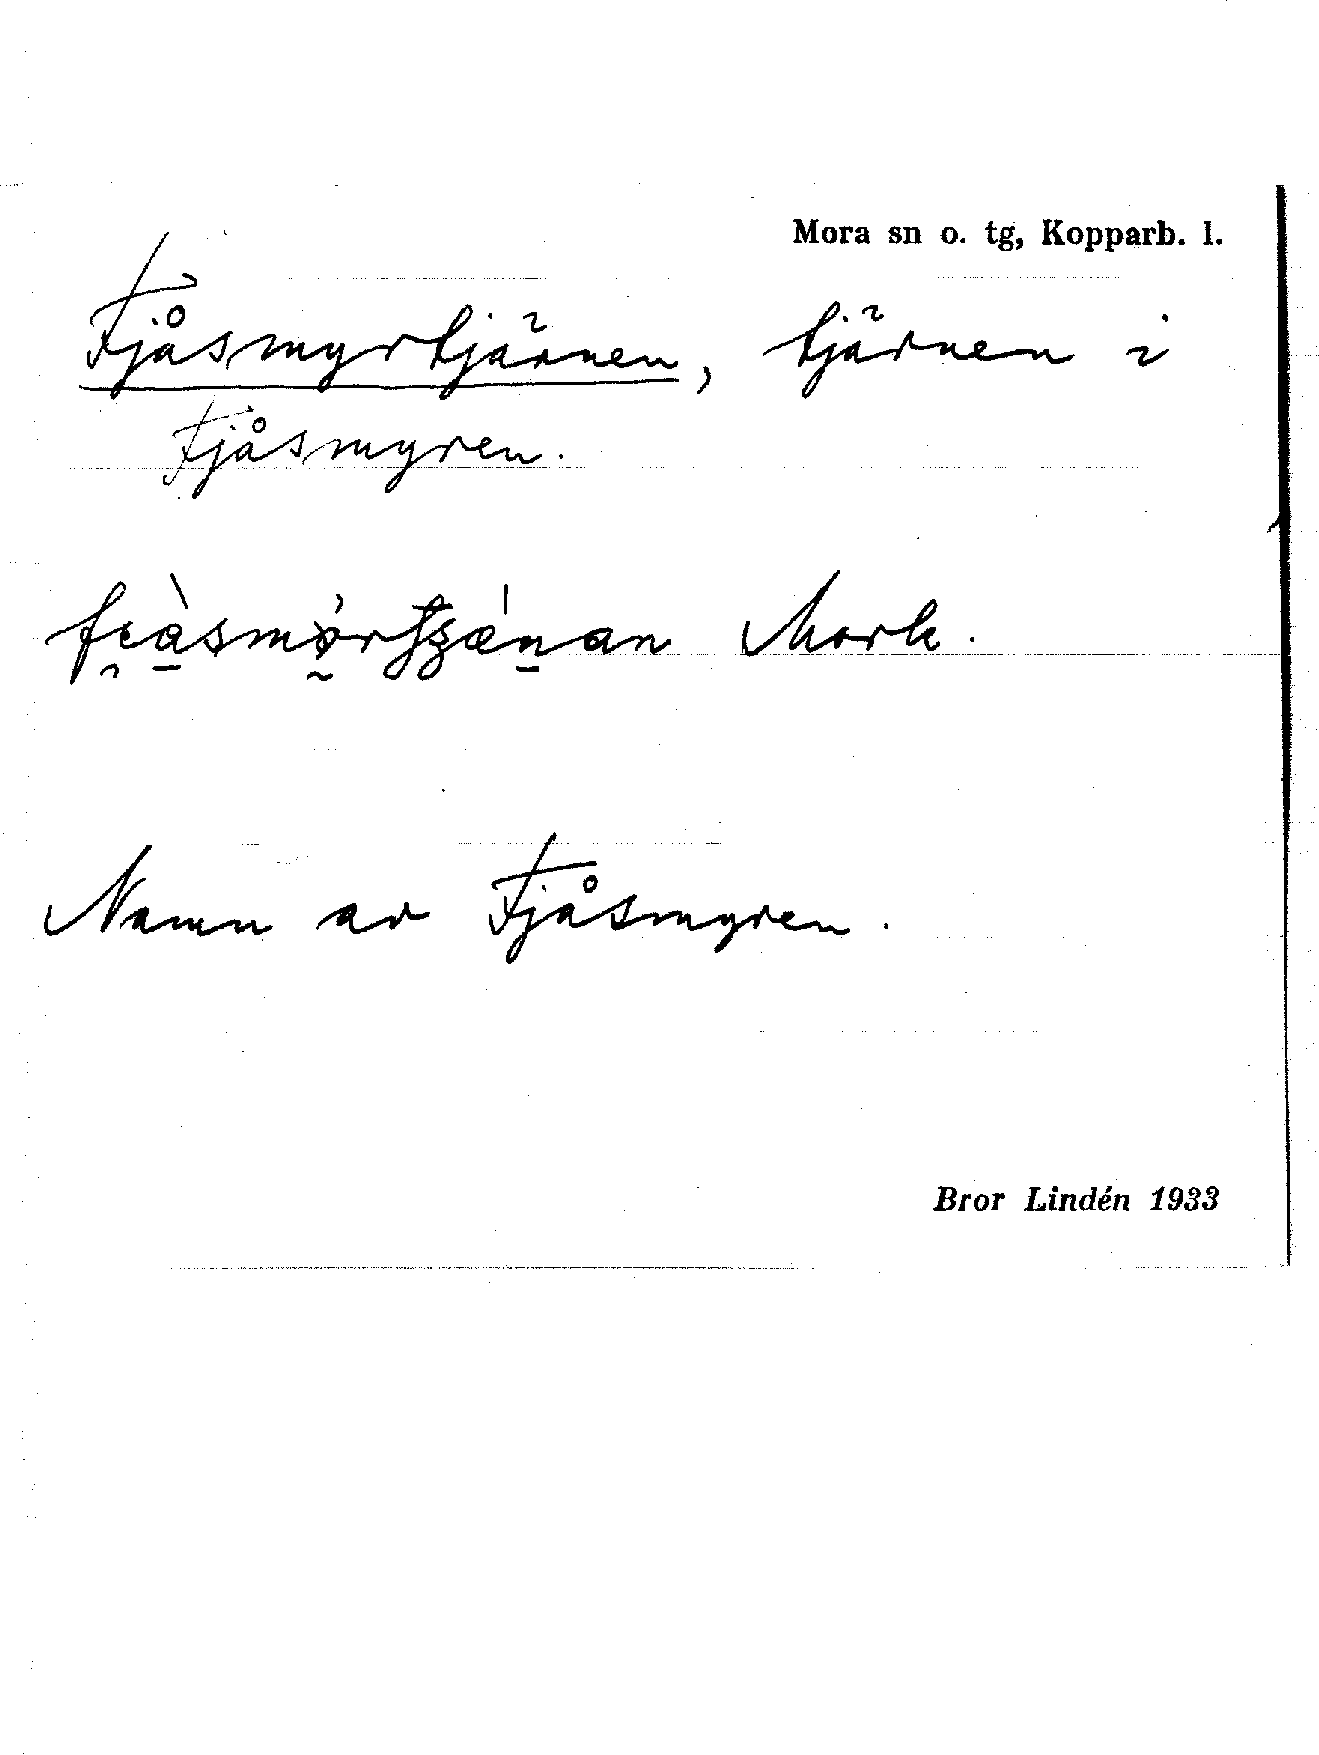 Mora sn o. tg, Kopparb. l.
Fjåsmyrtjärnen, tjärnen i
Fjåsmyren.
Mork.
Namn av Fjåsmyren.
Bror Lindén 1933